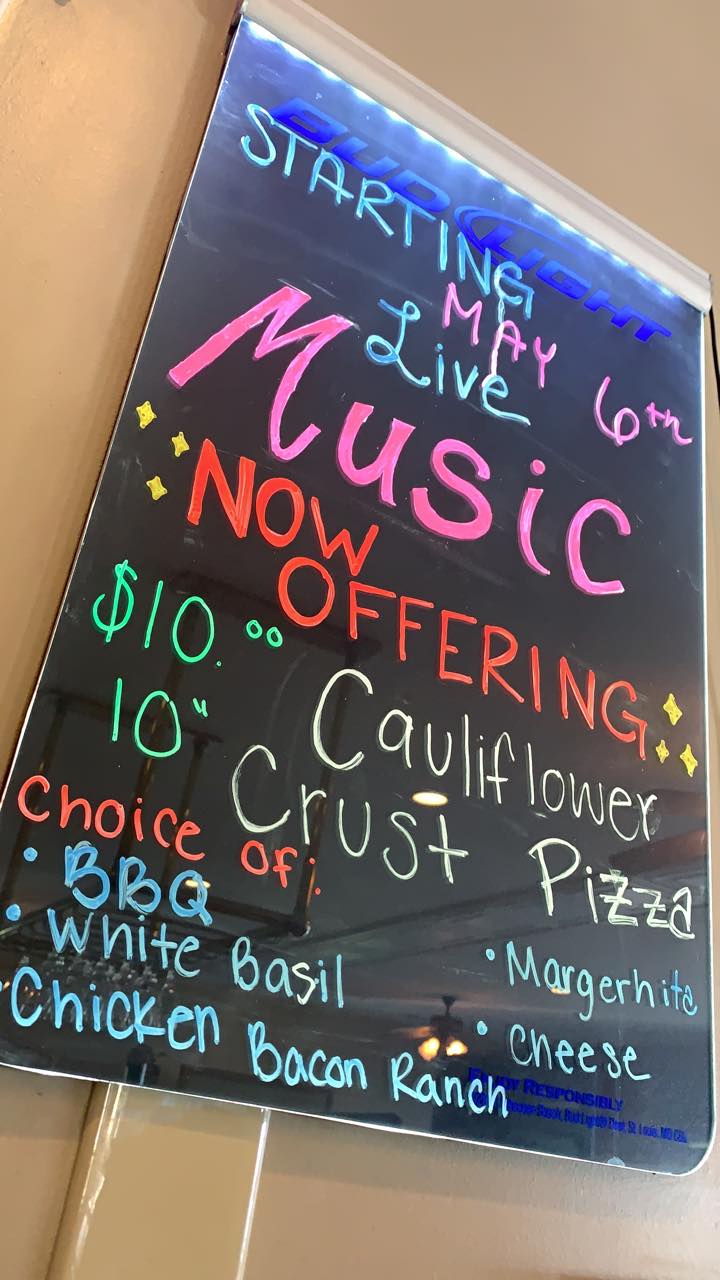 BUD LIGHT
STARTING
MAY 6th
Live
Music
NOW
OFFERING
$10.00
10" Cauliflower
Crust Pizza
Choice of:
• BBQ
• White Basil
• Chicken Bacon Ranch
• Margerhita
• Cheese
ENJOY RESPONSIBLY
Bud Light® Beer, St. Louis, MO